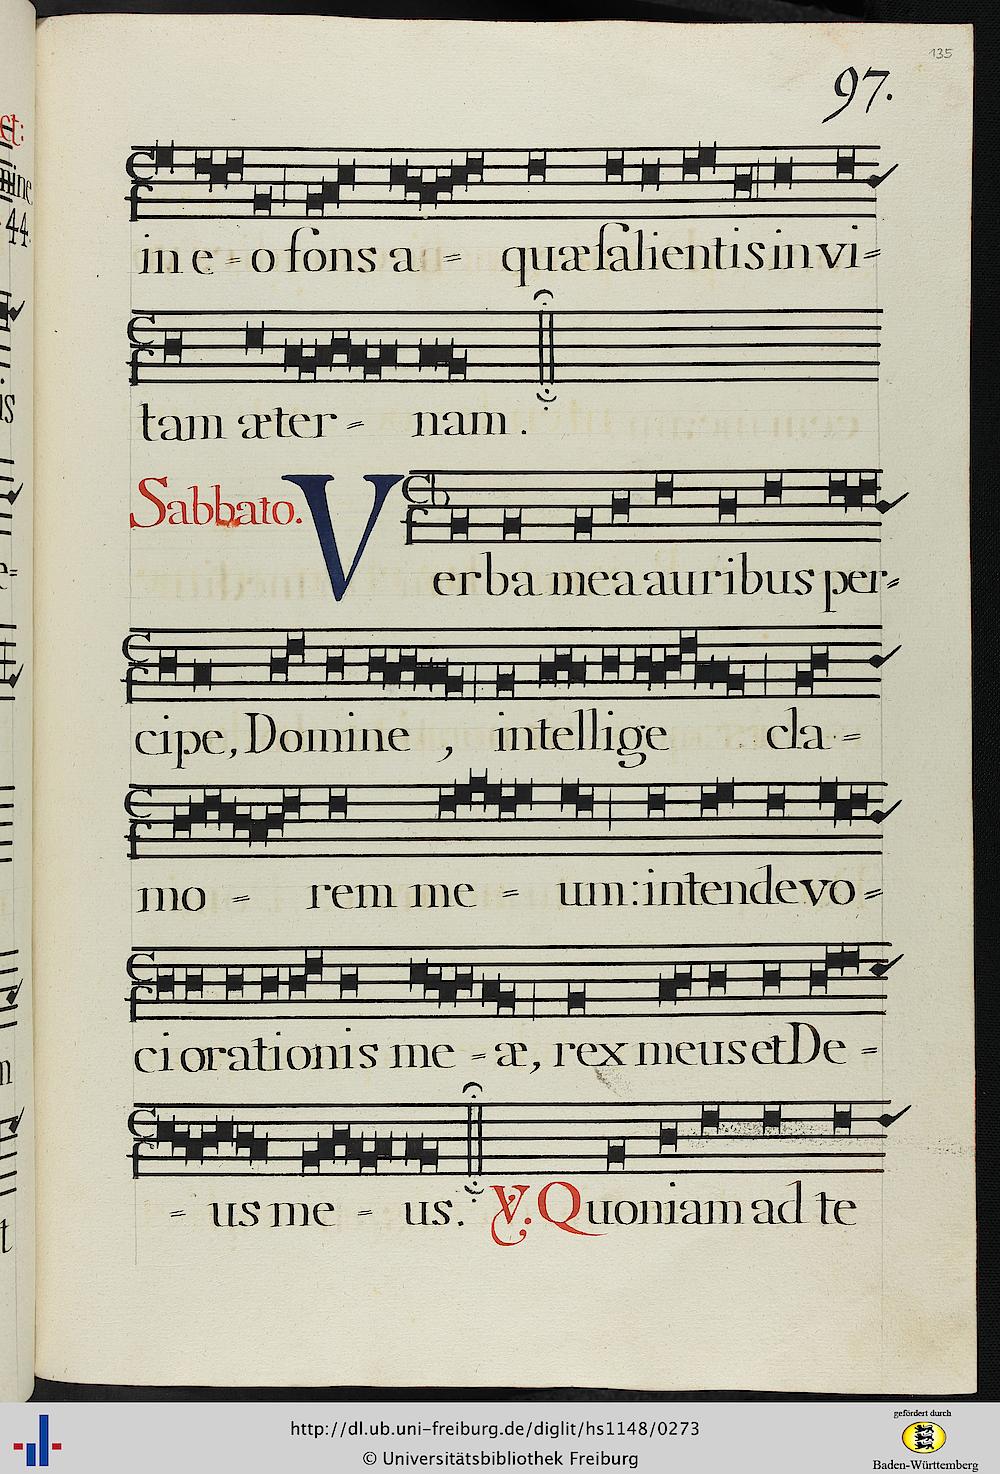 135
97.
in e - o fons a - quæ salientis in vi-
tam æter - nam.
Sabbato. Verba mea auribus per-
cipe, Domine, intellige cla-
mo - rem me - um: intende vo-
ci orationis me - æ, rex meus et De-
- us me - us. V. Quoniam ad te
ct:
44.
http://dl.ub.uni-freiburg.de/diglit/hs1148/0273
© Universitätsbibliothek Freiburg
gefördert durch
Baden-Württemberg